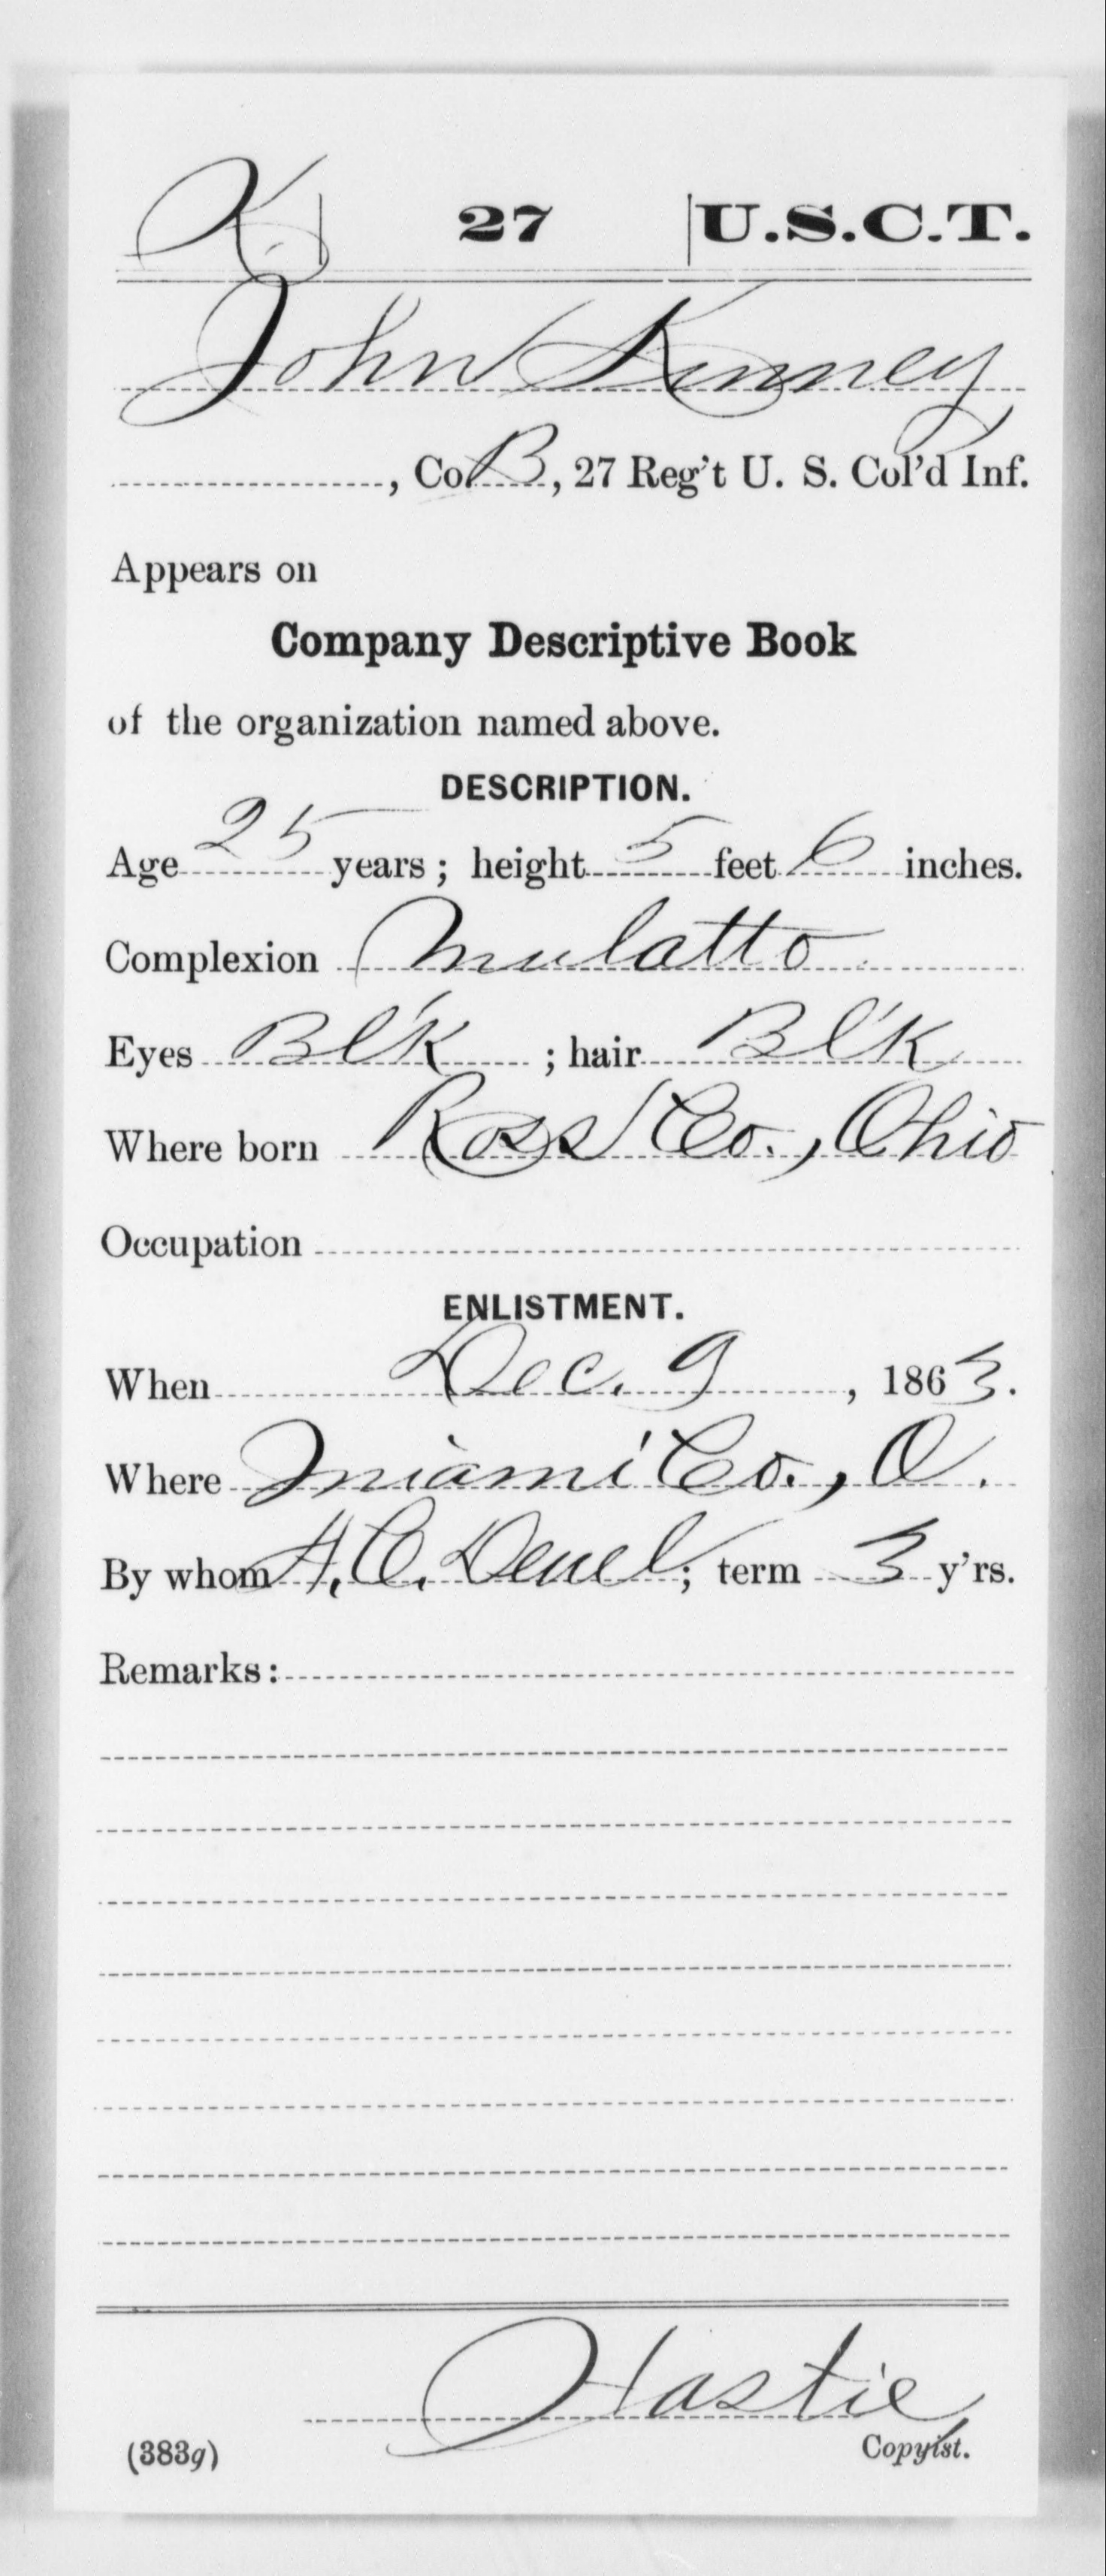 K. | 27 | U.S.C.T.
John Kinney
, Co. B, 27 Reg't U. S. Col'd Inf.
Appears on
Company Descriptive Book
of the organization named above.
DESCRIPTION.
Age 25 years; height 5 feet 6 inches.
Complexion Mulatto
Eyes Bl'k ; hair Bl'k
Where born Ross Co., Ohio
Occupation
ENLISTMENT.
When Dec. 9, 1863.
Where Miami Co., O.
By whom H. C. Deuel; term 3 y'rs.
Remarks:
Hastie
(383g) Copyist.